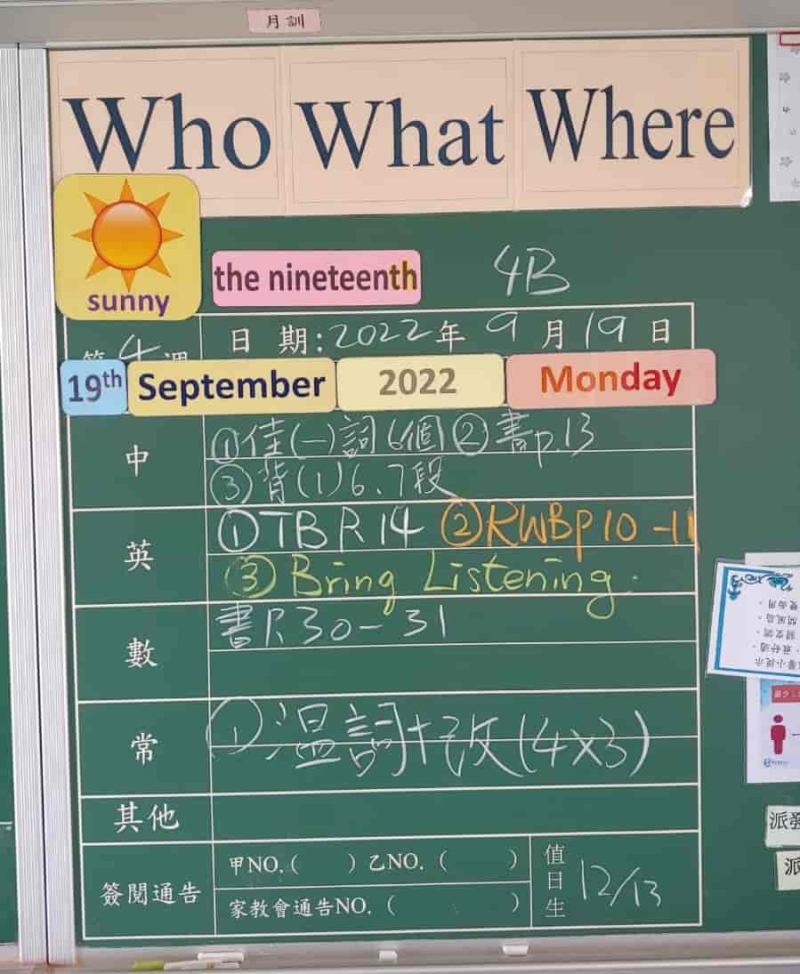 月訓
Who What Where
sunny
the nineteenth
4B
第4週
日 期:2022年9月19日
19th September 2022 Monday
中
①佳(一)詞6個②書p.13
③背(1)6、7段
英
①TB R14 ②RWBP10-11
③Bring Listening.
數
書P.30-31
常
①溫詞+改(4×3)
其他
簽閱通告
甲NO.( )乙NO.( )
家教會通告NO.( )
值日生
12/13
派發
派